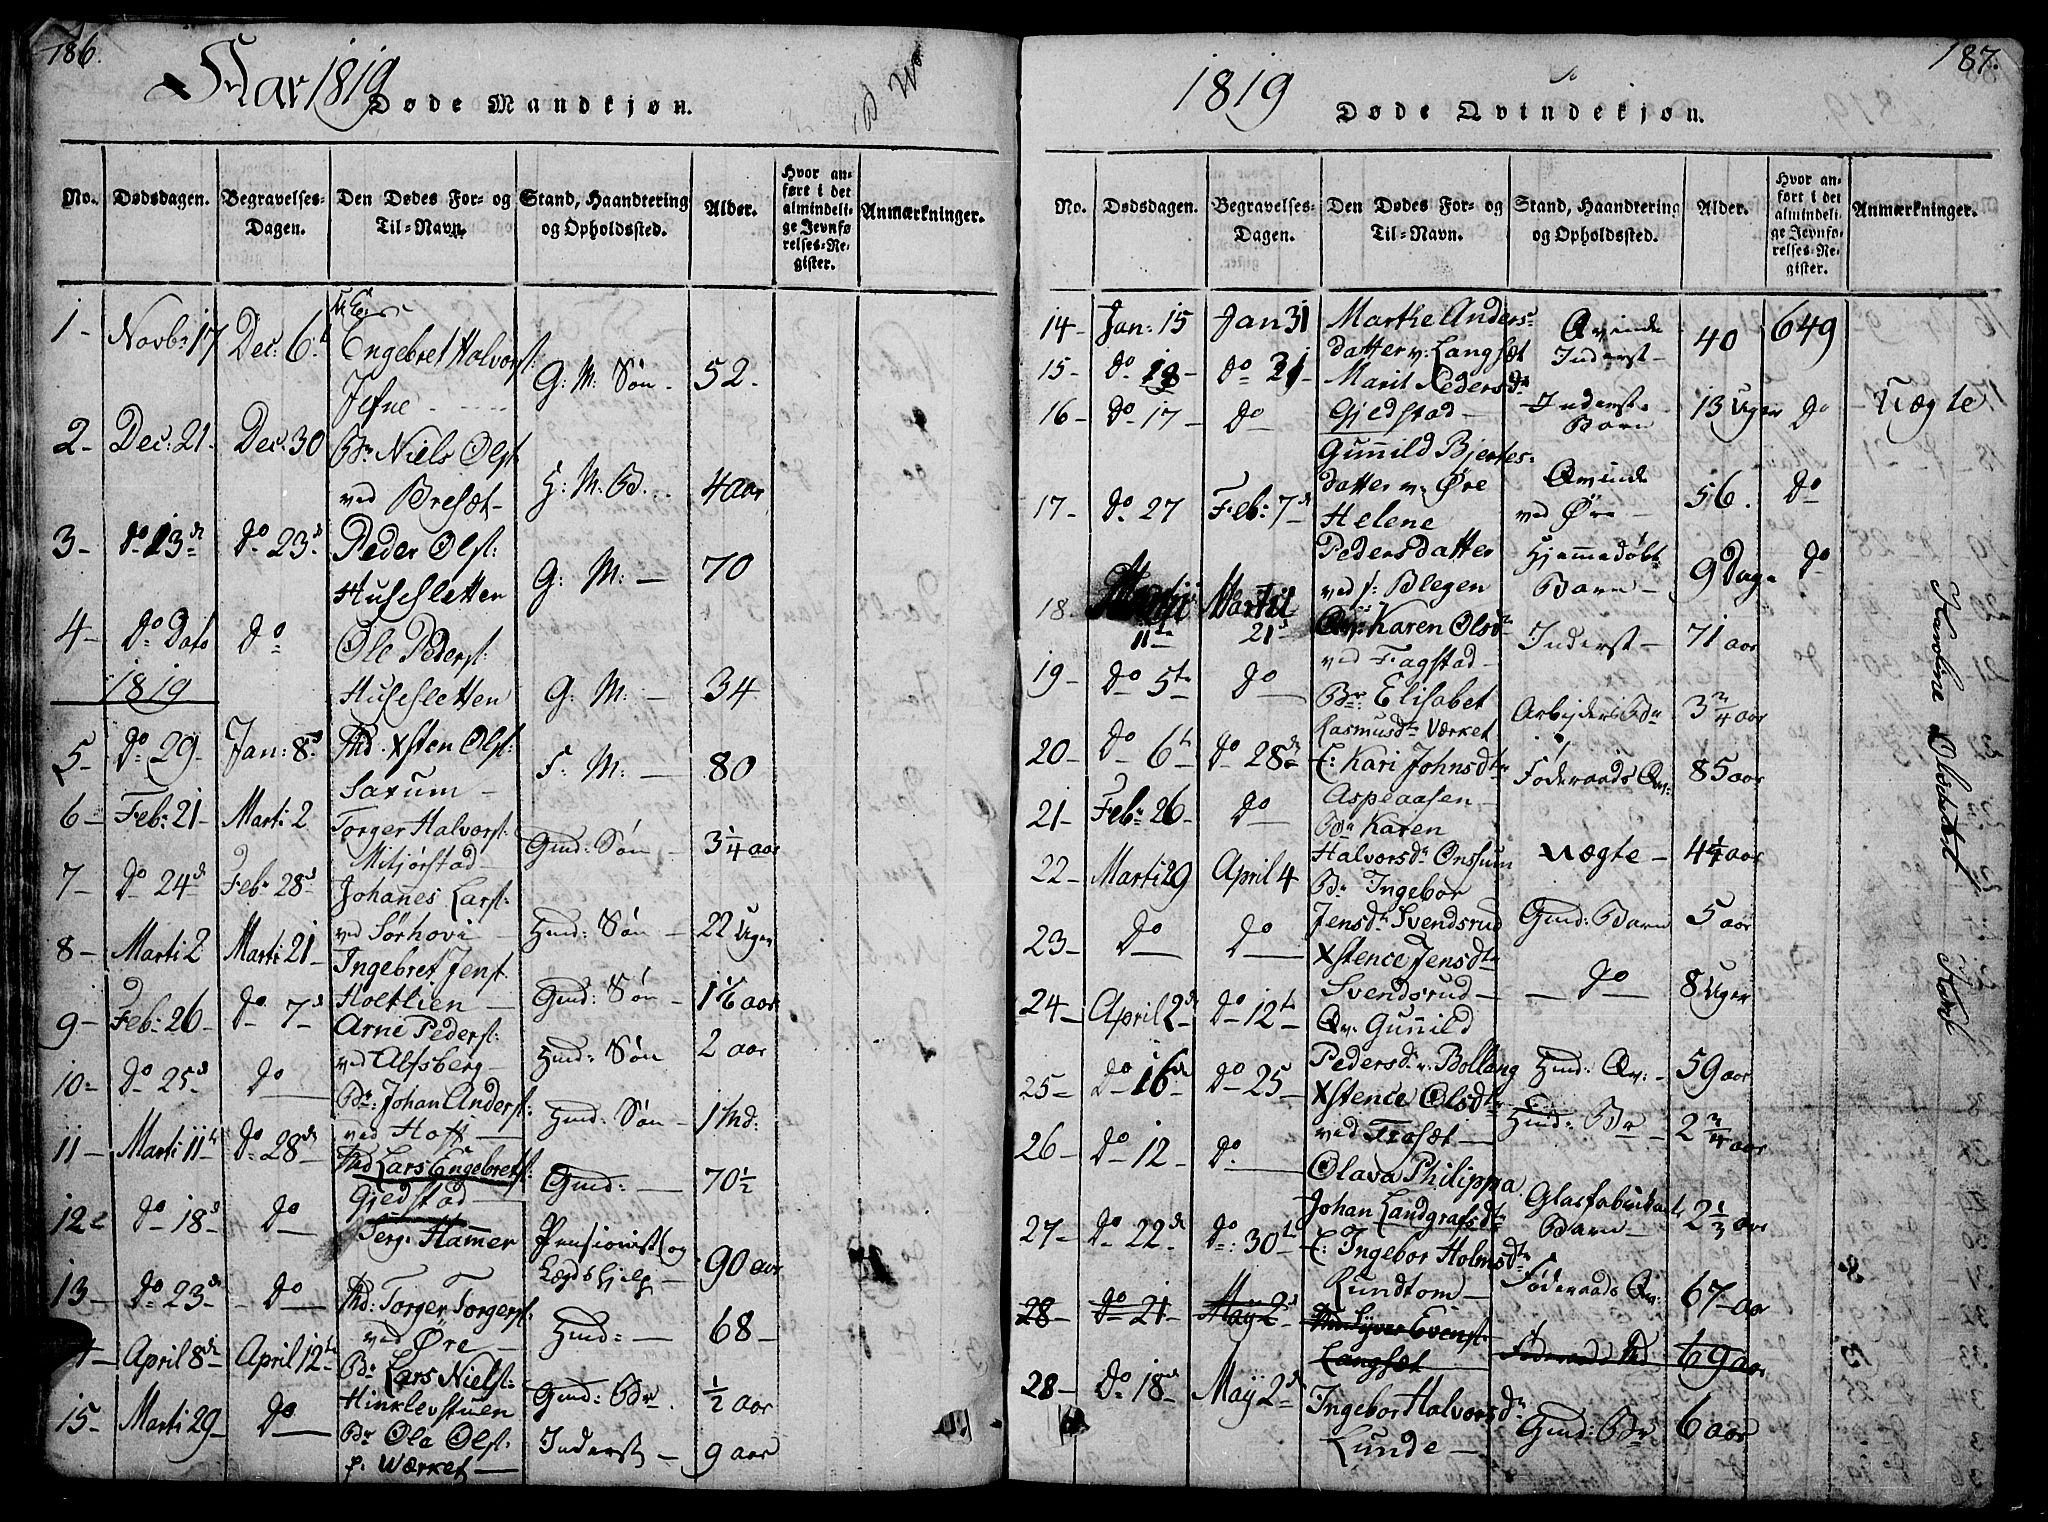 186.
Aar 1819
Døde Mandkjøn.
No. Dødsdagen. Begravelses-Dagen. Den Dødes For- og Til-Navn. Stand, Haandtering og Opholdssted. Alder. Hvor anført i det almindelige Jevnførelses-Register. Anmærkninger.
1 - Novbr 17 Dec: 6t Engebret Halvorst: Jefne G: M: Søn - 52.
2 - Dec: 21 - Dec: 30 Br Niels Olst ved Bresæt - H: M. B. 4 aar
3 - do 13d do 23d Peder Olst: Husesletten G: M: - 70
4 - do Dato do Ole Peders: Husesletten G: M: - 34
1819
5 - do 29 - Jan: 8d Md. Xsten Olst: Saxum - F: M: - 80
6 - Feb: 21 - Marti 2 Torger Halvorst: Mitjørstad - Gmd: Søn - 3 1/4 aar
7 - do 24d Feb: 28d Johanes Larst: ved Sørhovi - Hmd: Søn - 22 Uger
8 - Marti 2 Marti 21 - Ingebret Jenst Holtlien - Gmd: Søn - 1 1/6 aar
9 - Feb: 26 - do 7d Arne Pederst: ved Alfsberg - Hmd: Søn 2 aar
10 - do 25d do Br: Johan Anderst: ved Hoff - Hmd: Søn - 1 Md:
11 - Marti 11t do 28d Md Lars Engebretst: Gjedstad - Gmd: - 70 1/2
12 - do 18d do Serg: Hamer Pensionist (og Lægdshjelp - 90 aar
13 - do 23d - do Md: Torger Torgerst: ved Øre - Hmd: - 68 -
14 - April 8d April 12t Br Lars Nielst: Hinklevstuen Gmd: Br. 1/2 aar
15 - Marti 29 - do Br Ole Olst: p: Værket - Inderst - 9 aar
187.
1819
Døde Qvindekjøn.
No. Dødsdagen. Begravelses-Dagen. Den Dødes For- og Til-Navn. Stand, Haandtering og Opholdssted. Alder. Hvor anført i det almindelige Jevnførelses-Register. Anmærkninger.
14 - Jan: 15 Jan 31 Marthe Anders: datter v: Langsæt Qvinde Inderst - 40 649
15 - do 18 - do 31 - Marit Pedersdr Gjedstad - Inderst Barn 13 Uger do - Uægte
16 - do 17 - do Gunild Bjertes: datter v: Øre Qvinde ved Øre - 56. do
17 - do 27 Feb: 7d Helene Pedersdatter ved s: Blegen Hjemmedøbt Barn - 9 Dage do
18 Martii 11te Martii 21d Qv: Karen Olsdr ved Fagstad - Inderst - 71 aar
19 - do 5te do Br: Elisabet Rasmusdr Værket Arbejders Br 3 3/4 aar
20 - do 6t do 28d E: Kari Johnsdtr Aspeaasen - Føderaads Qv: 85 aar
21 - Feb: 26 do Br Karen Halvorsdr Onssum Uægte - 4 1/4 aar
22 - Marti 29 April 4 Br Ingebor Jensdr Svendsrud Gmd: Barn 5 aar
23 - do do Xstence Jensdtr Svendsrud - do 8 Uger
24 - April 2d do 12t Qv: Gunild Pedersdr v: Bollang Hmd: Qv: - 59 aar
25 - do 16d do 25 - Xstence Olsdtr ved Trosæt - Hmd: Br - 2 3/4 aar
26 - do 12 - do - Olava Philippa Johan Landgrafsdtr Glasfabrikants Barn - 2 1/3 aar
27 - do 22d do: 30t E: Ingebor Holmsdtr Rundtom - Føderaads Qv: 67 - aar
28 - do 21 - May 2d Md Syver Evenst: Langsæt Føderaads Md 69 aar
28 - do 18d Maÿ 2d Ingebor Halvorsdr Lunde - Gmd: Br 6 aar
Karoline Olsdatter